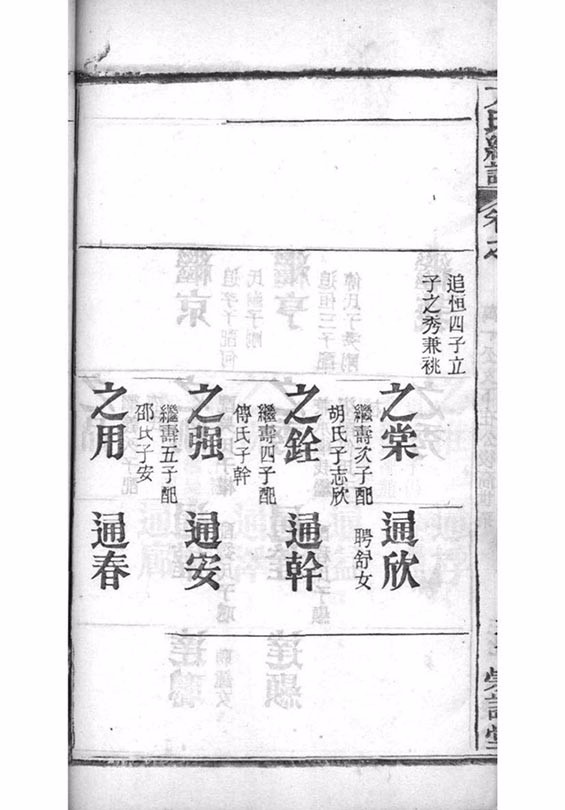 追恒四子立
子之秀兼祧
之棠
繼壽次子配
胡氏子志欣
通欣
聘舒女
之銓
繼壽四子配
傅氏子幹
通幹
之强
繼壽五子配
邵氏子安
通安
之用
通春